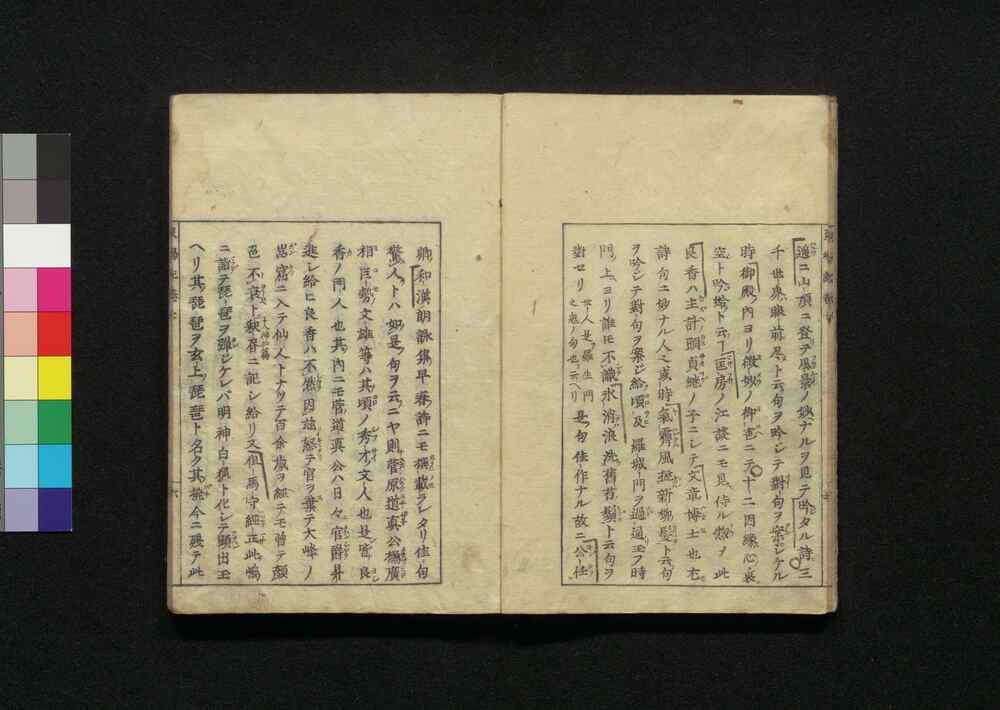 遶ニ山頂ニ登テ風景ノ妙ナルヲ見テ吟タル詩ニ三
千世界眼前尽ト云句ヲ吟シテ對句ヲ案シケル
時御殿ノ内ヨリ微妙ノ御声ニテ十二因縁心裏
空ト吟給ト云フ匡房ノ江談ニモ見ヘ侍ル都
良香ハ主計頭貞継ノ子ニシテ文章博士也尤
詩句ニ妙ナル人也或時氣霽風梳新柳髮ト云句
ヲ吟シテ對句ヲ案シ給頃及羅城門ヲ過玉フ時
門上ヨリ誰トモ不識氷消浪洗舊苔鬚ト云句ヲ
對セリ 是句佳作ナル故ニ公任
卿和漢朗詠集早春詩ニモ撰載ラレタリ佳句
驚人トハ如是句ヲ云ニヤ則菅原道真公橘廣
相巨勢文雄等ハ其頃ノ秀才文人也是皆良
香ノ門人也其内ニモ菅道真公ハ日々官爵昇
進シ給ニ良香ハ不然因茲終官ヲ棄テ大峰ノ
嵓窟ニ入テ仙人トナリテ百余歳ヲ經テモ曽テ顔
色不衰ト釈書ニ記シ給リ又但馬守經正此嶋
ニ詣テ琵琶ヲ弾シケレバ明神白狐ト化シテ顕出玉
ヘリ其琵琶ヲ玄上ノ琵琶ト名ク其撥今ニ残テ此
六